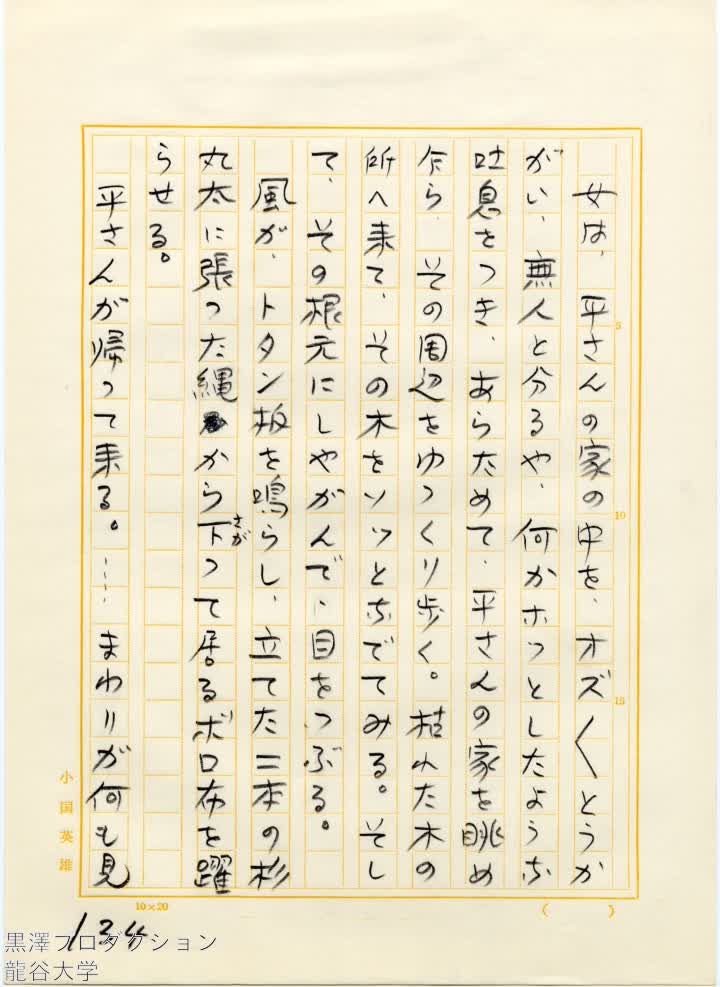 女は、平さんの家の中を、オズ〱とうか
がい、無人と分るや、何かホッとしたような
吐息をつき、あらためて、平さんの家を眺め
乍ら、その周辺をゆっくり歩く。枯れた木の
所へ来て、その木をソッとなでてみる。そし
て、その根元にしやがんで、目をつぶる。
風が、トタン板を鳴らし、立てた二本の杉
丸太に張った縄から下って居るボロ布を躍
さが
らせる。
平さんが帰って来る。……まわりが何も見
5
10
15
小国英雄
10×20
(　　)
134
黒澤プロダクション
龍谷大学